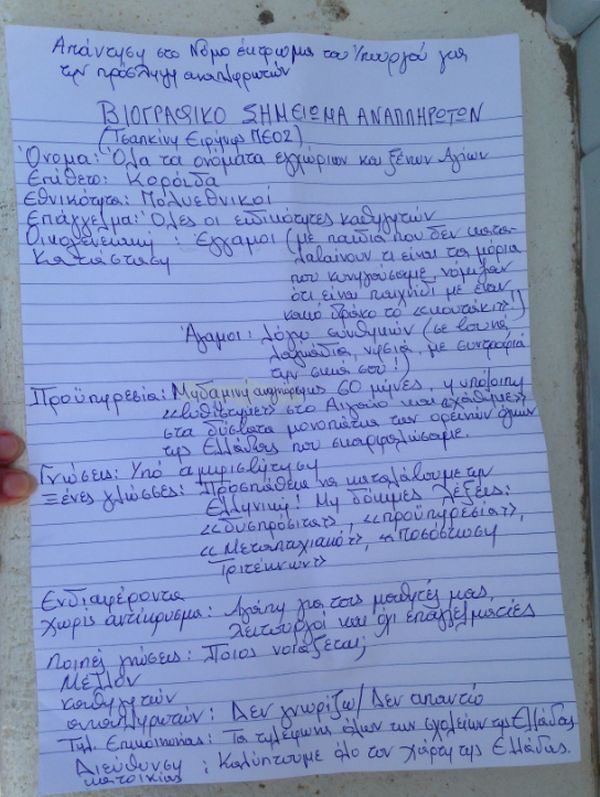 Απάντηση στο Νομοέκτρωμα του Υπουργού για
την πρόσληψη αναπληρωτών
ΒΙΟΓΡΑΦΙΚΟ ΣΗΜΕΙΩΜΑ ΑΝΑΠΛΗΡΩΤΩΝ
(Τσαπκίνη Ειρήνης ΠΕ02)
Όνομα: Όλα τα ονόματα εγχώριων και ξένων Αγίων
Επίθετο: Κορόιδα
Εθνικότητα: Πολυεθνικοί
Επάγγελμα: Όλες οι ειδικότητες καθηγητών
Οικογενειακή : Έγγαμοι (με παιδιά που δεν κατα-
Κατάσταση λαβαίνουν τι είναι τα μόρια
που κυνηγούσαμε, νόμιζαν
ότι είναι παιχνίδι με έναν
κακό δράκο το «κουτάκι»!)
Άγαμοι: Λόγω συνθηκών (σε βουνά,
λαγκάδια, νησιά, με συντροφιά
την σκιά σου!)
Προϋπηρεσία: Μηδαμινή αναγνώρισης 60 μήνες, η υπόλοιπη
«βυθίστηκε» στο Αιγαίο και «χάθηκε»
στα δύσβατα μονοπάτια των ορεινών όγκων
της Ελλάδας που σκαρφαλώσαμε.
Γνώσεις: Υπό αμφισβήτηση
Ξένες γλώσσες: Προσπάθεια να καταλάβουμε την
Ελληνική! Μη δόκιμες λέξεις:
«δυσπρόσιτα», «προϋπηρεσία»,
«Μεταπτυχιακό», «ποσόστωση
Τριτέκνων»
Ενδιαφέροντα
Χωρίς αντίκρυσμα: Αγάπη για τους μαθητές μας,
λειτουργοί και όχι επαγγελματίες
Λοιπές γνώσεις: Ποιος νοιάζεται;
Μέλλον
καθηγητών
αναπληρωτών: Δεν γνωρίζω/Δεν απαντώ
Τηλ. Επικοινωνίας: Τα τηλέφωνα όλων των σχολείων της Ελλάδας
Διεύθυνση : Καλύπτουμε όλο τον χάρτη της Ελλάδας.
κατοικίας